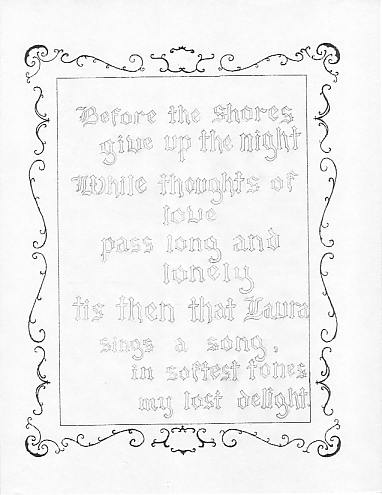 Before the shores
give up the night
While thoughts of
love
pass long and
lonely
tis then that Laura
sings a song,
in softest tones
my lost delight.